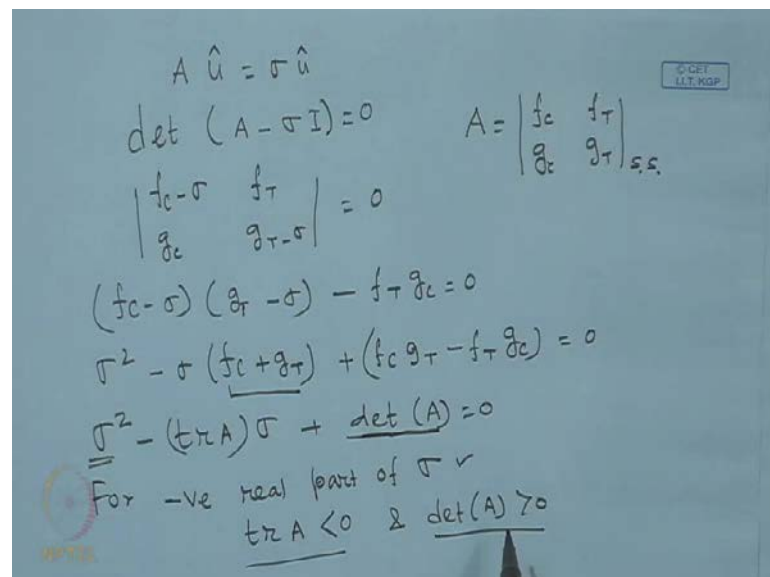 A û = σ û
© CET
I.I.T. KGP
det (A - σ I) = 0
A = | fc fT |
| gc gT | s.s.
| fc-σ fT | = 0
| gc gT-σ |
(fc-σ) (gT-σ) - fT gc = 0
σ² - σ (fc + gT) + (fc gT - fT gc) = 0
σ² - (tr A) σ + det (A) = 0
For -ve real part of σ
tr A < 0 & det(A) > 0